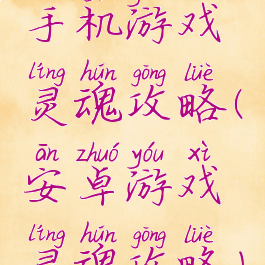 手机游戏
líng hún gōng lüè
灵魂攻略(
ān zhuó yóu xì
安卓游戏
líng hún gōng lüè
灵魂攻略)